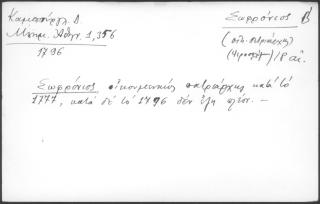 Καμπούργλ. Δ
Μνημ. Ἀθην. 1, 356
1796
Σωφρόνιος Β
(οἰκ. πατριάρχης)
18 αἰ.
Σωφρόνιος οἰκουμενικός πατριάρχης κατά τό
1777, κατά δέ τό 1796 δέν ἔζη πλέον. —